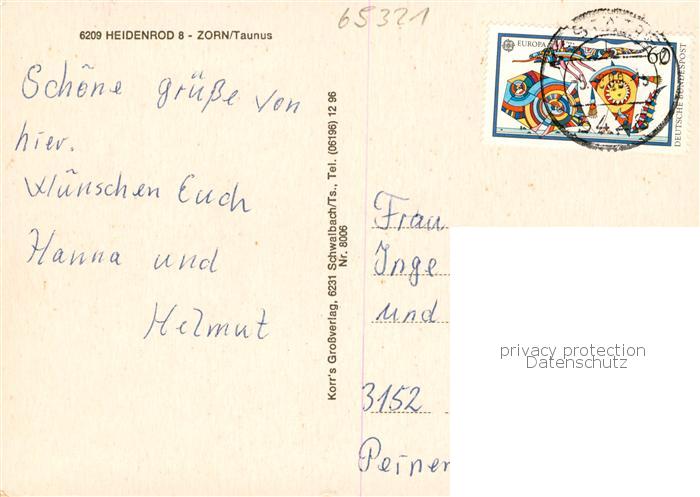 6209 HEIDENROD 8 - ZORN/Taunus
65321
Schöne grüße von
hier.
Wünschen Euch
Hanna und
Helmut
Korr's Großverlag, 6231 Schwalbach/Ts., Tel. (06196) 12 96
Nr. 8006
EUROPA
60
DEUTSCHE BUNDESPOST
Frau
Inge
und
3152
Peiner
privacy protection
Datenschutz